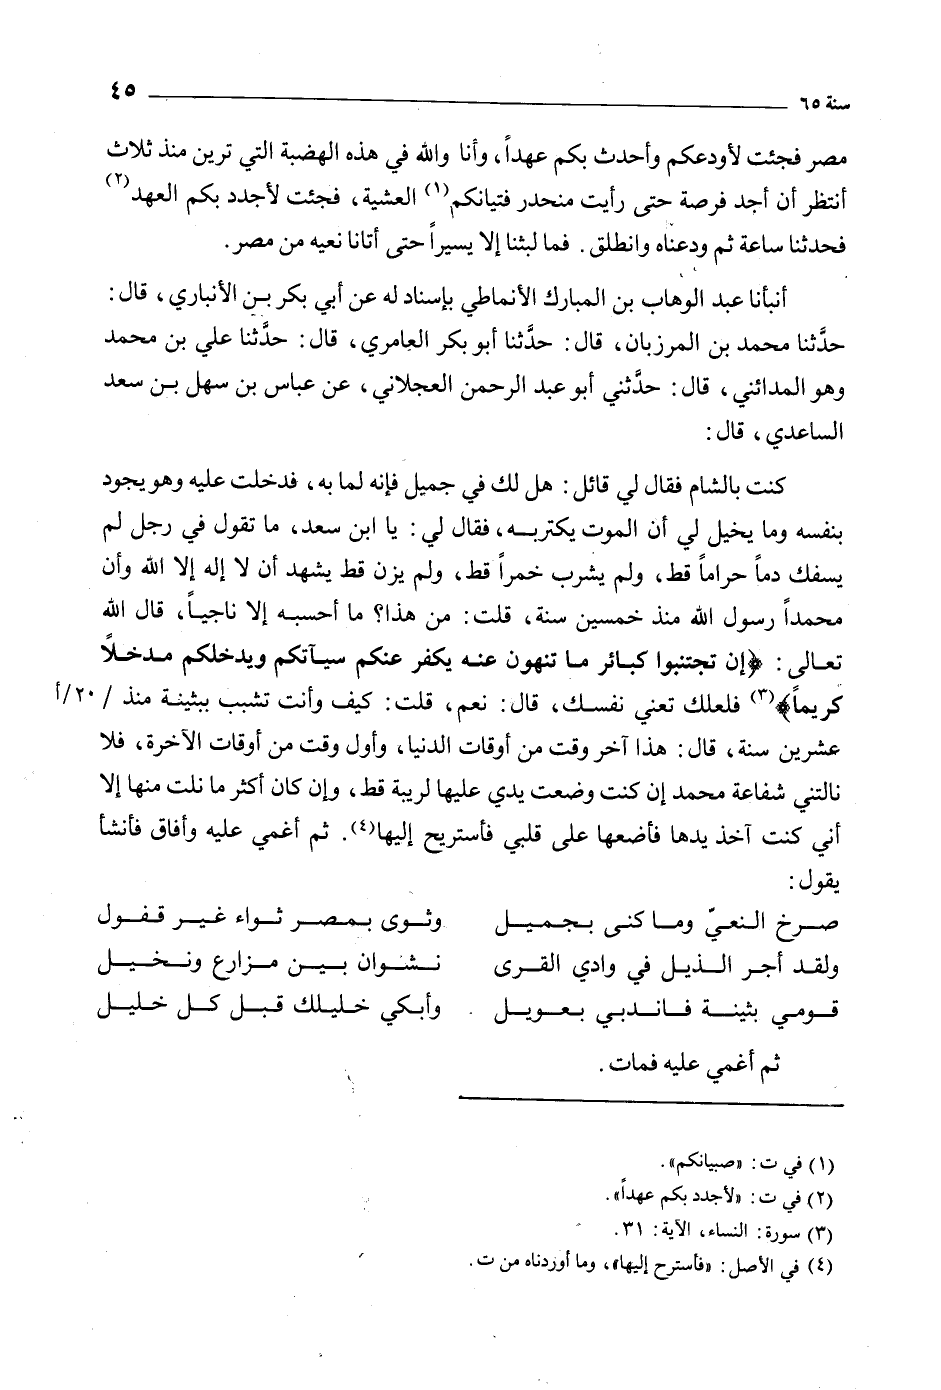 سنة ٦٥ ٤٥
مصر فجئت لأودعكم وأحدث بكم عهداً، وأنا والله في هذه الهضبة التي ترين منذ ثلاث
أنتظر أن أجد فرصة حتى رأيت منحدر فتيانكم(١) العشية، فجئت لأجدد بكم العهد(٢)
فحدثنا ساعة ثم ودعناه وانطلق. فما لبثنا إلا يسيراً حتى أتانا نعيه من مصر.
أنبأنا عبد الوهاب بن المبارك الأنماطي بإسناد له عن أبي بكر بن الأنباري، قال:
حدَّثنا محمد بن المرزبان، قال: حدَّثنا أبو بكر العامري، قال: حدَّثنا علي بن محمد
وهو المدائني، قال: حدَّثني أبو عبد الرحمن العجلاني، عن عباس بن سهل بن سعد
الساعدي، قال:
كنت بالشام فقال لي قائل: هل لك في جميل فإنه لما به، فدخلت عليه وهو يجود
بنفسه وما يخيل لي أن الموت يكتربه، فقال لي: يا ابن سعد، ما تقول في رجل لم
يسفك دماً حراماً قط، ولم يشرب خمراً قط، ولم يزن قط يشهد أن لا إله إلا الله وأن
محمداً رسول الله منذ خمسين سنة، قلت: من هذا؟ ما أحسبه إلا ناجياً، قال الله
تعالى: ﴿إن تجتنبوا كبائر ما تنهون عنه يكفر عنكم سيآتكم ويدخلكم مدخلاً
كريماً﴾(٣) فلعلك تعني نفسك، قال: نعم، قلت: كيف وأنت تشبب ببثينة منذ / ٢٠/أ
عشرين سنة، قال: هذا آخر وقت من أوقات الدنيا، وأول وقت من أوقات الآخرة، فلا
نالتني شفاعة محمد إن كنت وضعت يدي عليها لريبة قط، وإن كان أكثر ما نلت منها إلا
أني كنت آخذ يدها فأضعها على قلبي فأستريح إليها(٤). ثم أغمي عليه وأفاق فأنشأ
يقول:
صرخ النعيّ وما كنى بجميل وثوى بمصر ثواء غير قفول
ولقد أجر الذيل في وادي القرى نشوان بين مزارع ونخيل
قومي بثينة فاندبي بعويل وأبكي خليلك قبل كل خليل
ثم أغمي عليه فمات.
(١) في ت: «صبيانكم».
(٢) في ت: «لأجدد بكم عهداً».
(٣) سورة: النساء، الآية: ٣١.
(٤) في الأصل: «فأسترح إليها»، وما أوردناه من ت.